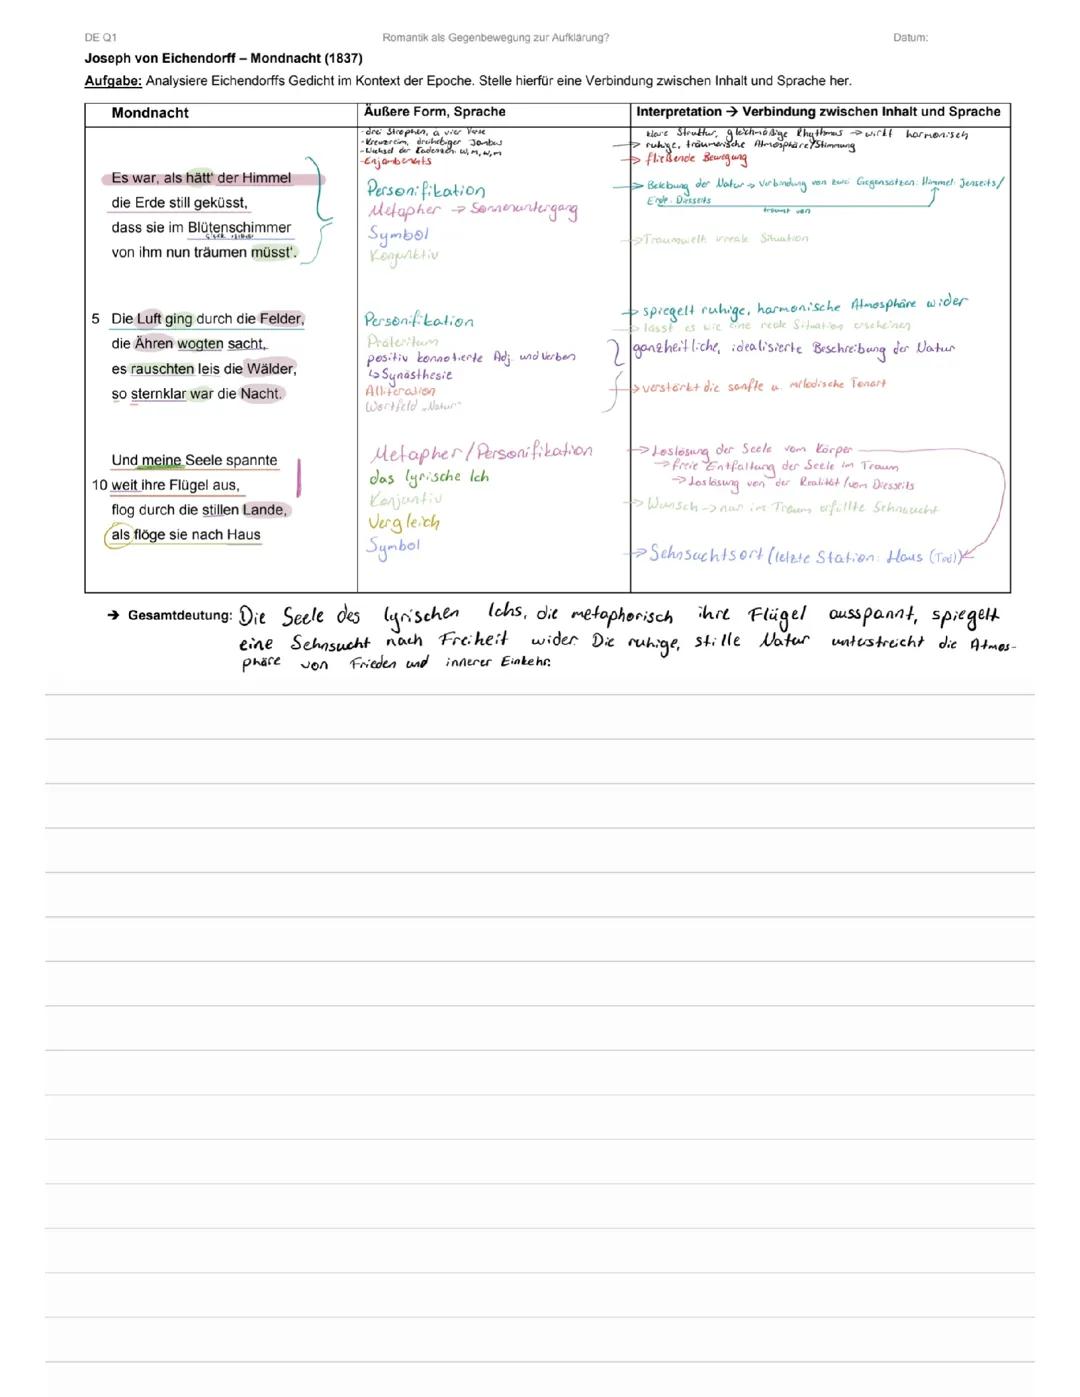 DE Q1 Romantik als Gegenbewegung zur Aufklärung? Datum:
Joseph von Eichendorff – Mondnacht (1837)
Aufgabe: Analysiere Eichendorffs Gedicht im Kontext der Epoche. Stelle hierfür eine Verbindung zwischen Inhalt und Sprache her.
Mondnacht
Es war, als hätt' der Himmel
die Erde still geküsst,
dass sie im Blütenschimmer
von ihm nun träumen müsst'.
5 Die Luft ging durch die Felder,
die Ähren wogten sacht,
es rauschten leis die Wälder,
so sternklar war die Nacht.
Und meine Seele spannte
10 weit ihre Flügel aus,
flog durch die stillen Lande,
als flöge sie nach Haus
Äußere Form, Sprache
- drei Strophen, á vier Verse
- Kreuzreim, dreihebiger Jambus
- Wechsel der Kadenzen: w, m, w, m
- Enjambements
Personifikation
Metapher → Sonnenuntergang
Symbol
Konjunktiv
Personifikation
Präteritum
positiv konnotierte Adj. und Verben
↳ Synästhesie
Alliteration
Wortfeld „Natur"
Metapher/Personifikation
das lyrische Ich
Konjuntiv
Vergleich
Symbol
Interpretation → Verbindung zwischen Inhalt und Sprache
klare Struktur, gleichmäßige Rhythmus → wirkt harmonisch
→ ruhige, träumerische Atmosphäre/Stimmung
→ fließende Bewegung
→ Belebung der Natur → Verbindung von zwei Gegensätzen: Himmel: Jenseits/
Erde: Diesseits
träumt von
→ Traumwelt, irreale Situation
→ spiegelt ruhige, harmonische Atmosphäre wider
→ lässt es wie eine reale Situation erscheinen
ganzheitliche, idealisierte Beschreibung der Natur
→ verstärkt die sanfte u. melodische Tonart
→ Loslösung der Seele vom Körper
→ freie Entfaltung der Seele im Traum
→ Loslösung von der Realität/vom Diesseits
→ Wunsch → nur im Traum erfüllte Sehnsucht
→ Sehnsuchtsort (letzte Station: Haus (Tod))
→ Gesamtdeutung: Die Seele des lyrischen Ichs, die metaphorisch ihre Flügel ausspannt, spiegelt
eine Sehnsucht nach Freiheit wider. Die ruhige, stille Natur unterstreicht die Atmos-
phäre von Frieden und innerer Einkehr.